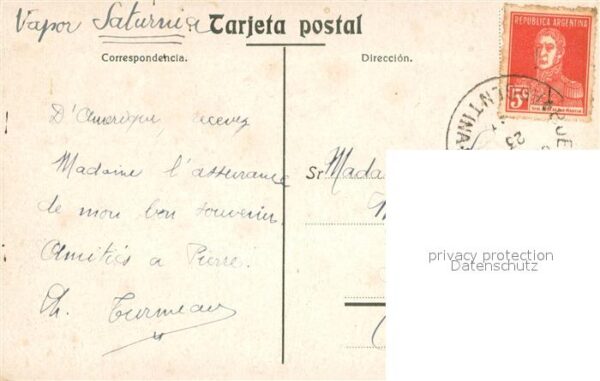 Vapor Saturnia
Tarjeta postal
Correspondencia.
Dirección.
REPUBLICA ARGENTINA
5
D'Amérique, recevez
Madame l'assurance
de mon bon souvenir.
Amitiés a Pierre.
Sr Mada
privacy protection
Datenschutz